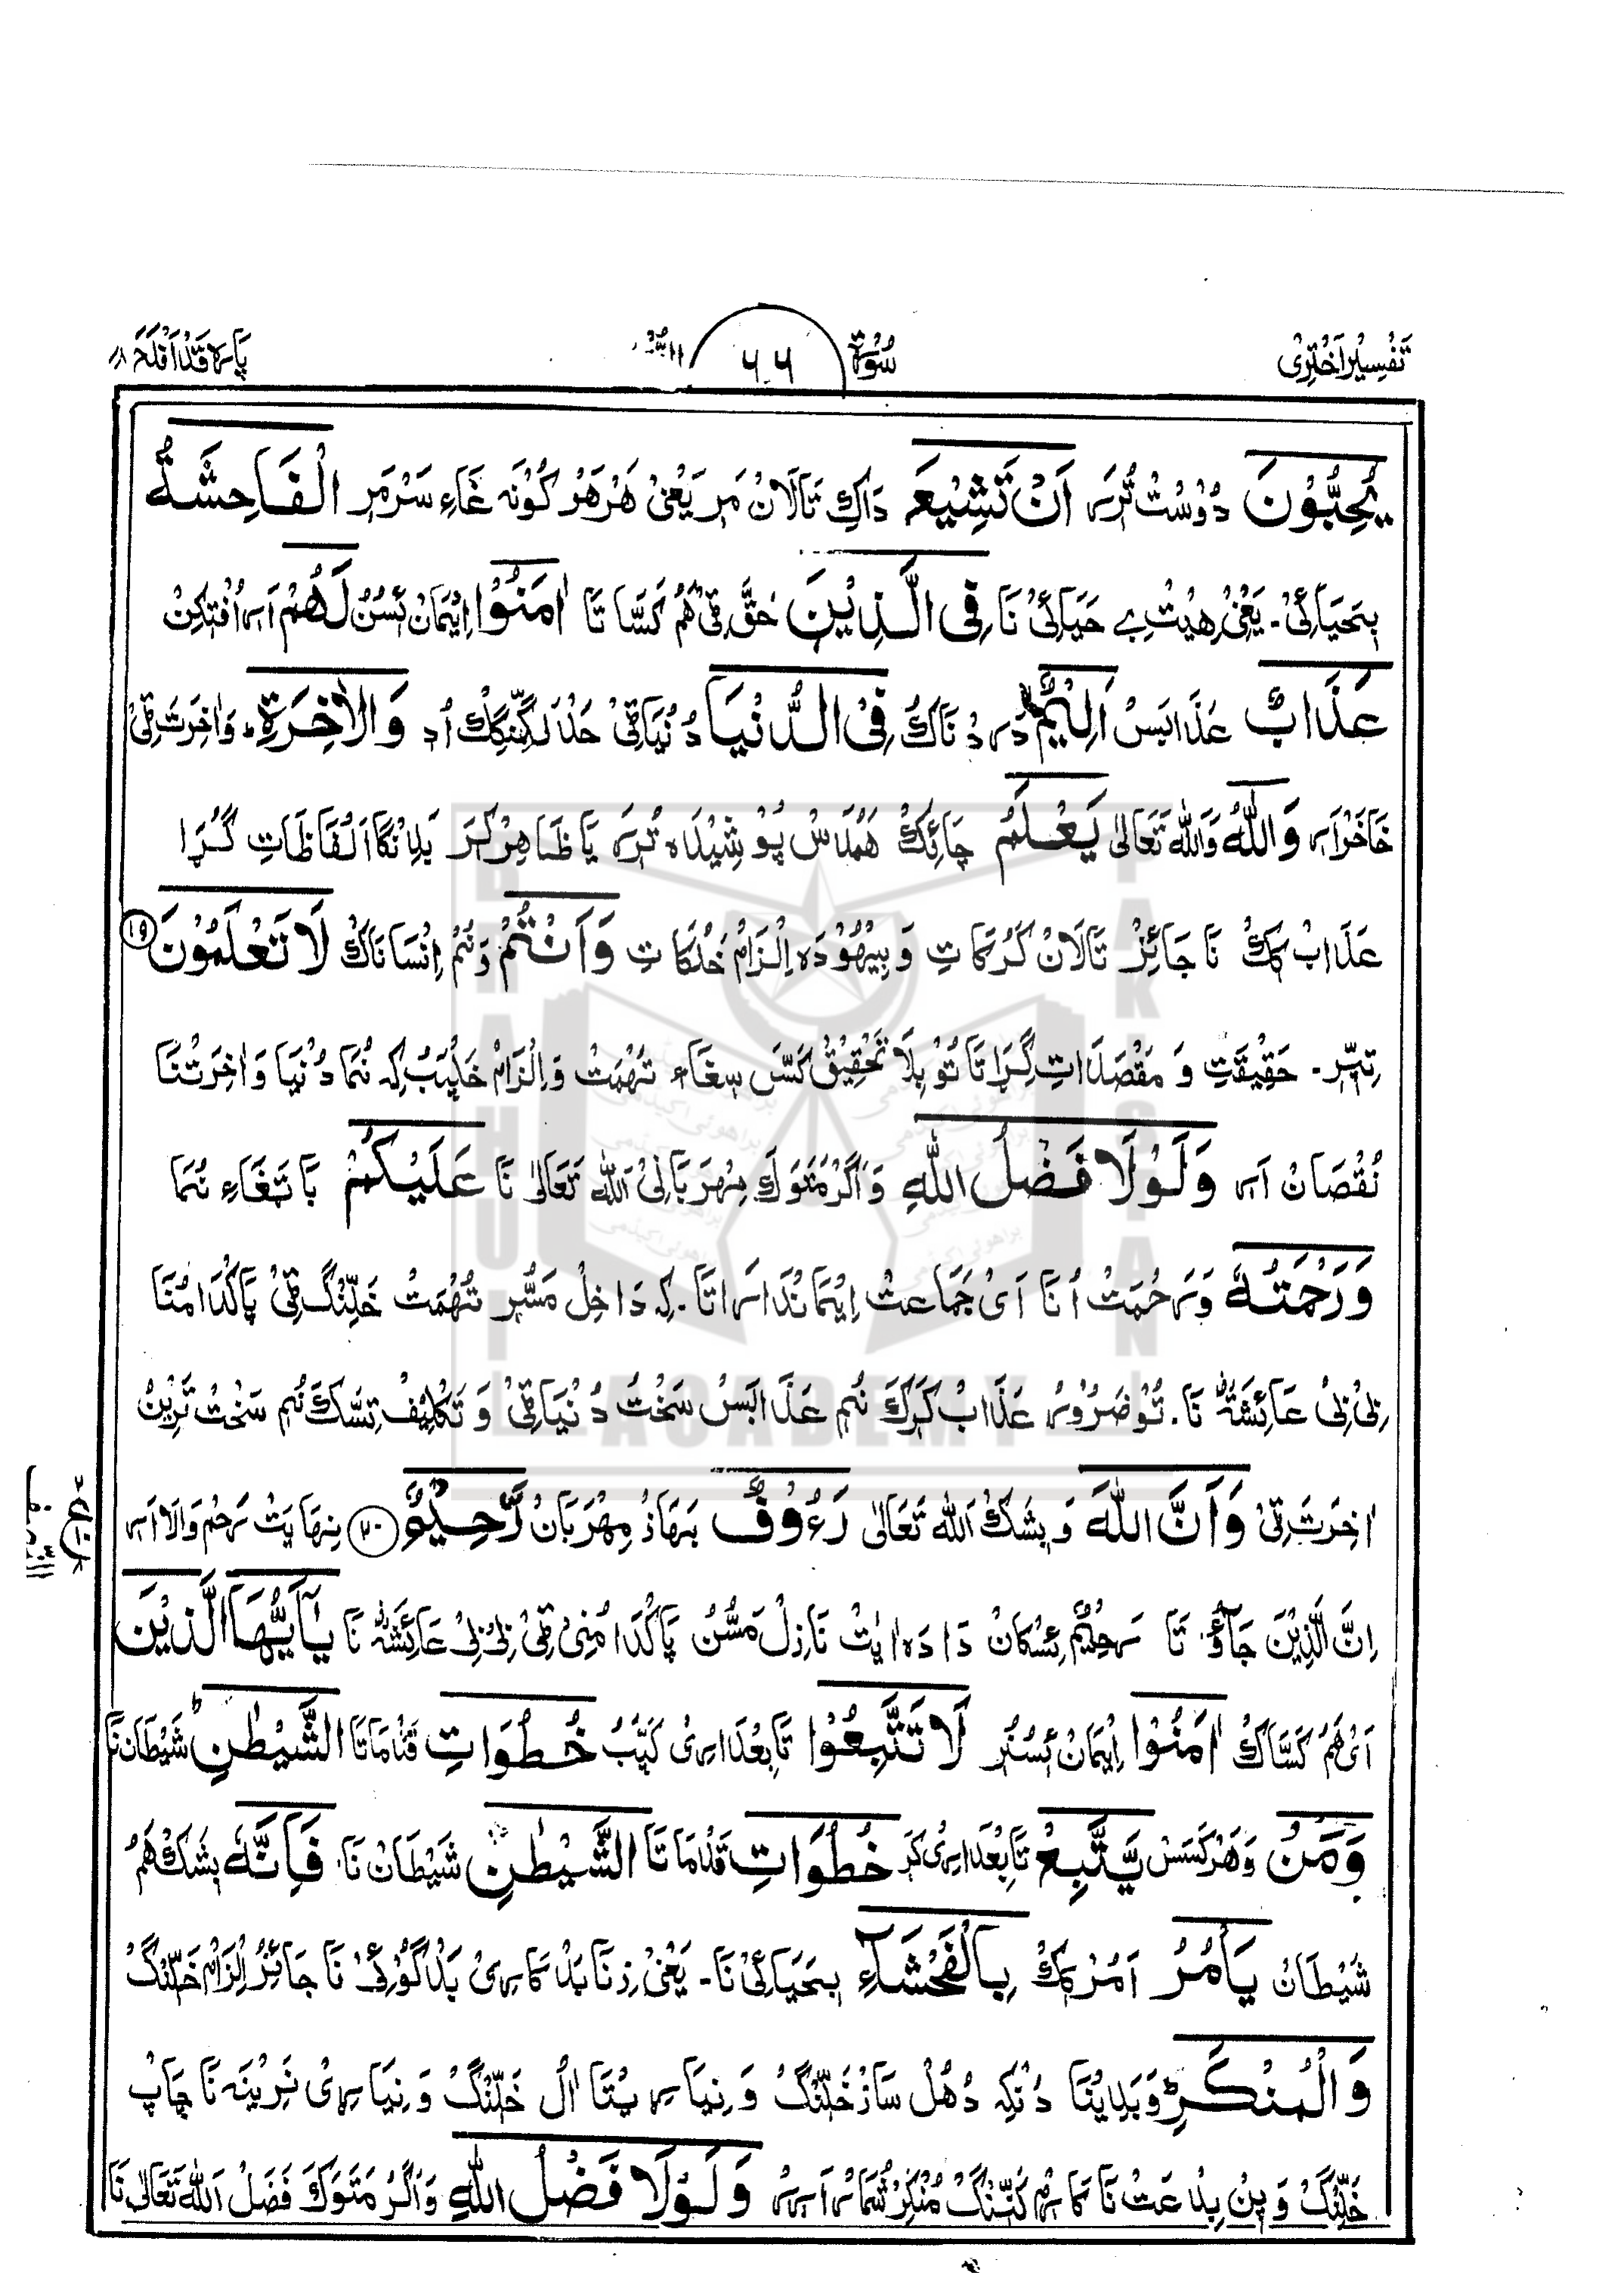 تَفْسِیْرِ اَخْتَرِیْ سُوْرَۃ النُّوْر ۶۶ پَارَہ قَدْ اَفْلَحَ ۱۸
یُحِبُّوْنَ دُوْسْتْ تُرَہ اَنْ تَشِیْعَ دَاکِ تَالَانْ مَرِ یَعْنِیْ ھَرْ ھَرْ کُوْنَہ غَاءِ سَرْمَرِ الْفَاحِشَۃُ
بِحَیَائِیْ۔ یَعْنِیْ ھِیْتِ بے حَیَائِیْ نَا فِی الَّذِیْنَ حَقَّ ٹِیْ ھُمْ کَسَّا تَا اٰمَنُوْا اِیْمَانْ ئسُنْ لَھُمْ اَرِہ اُفْتِکِنْ
عَذَابٌ عَذَابَسْ اَلِیْمٌ دَرْدْنَاکُ فِی الدُّنْیَا دُنْیَا ٹِیْ حَدْ لَگِّنْگِکْ اُدِ وَالْاٰخِرَۃِ۔ وَاٰخِرَتَ ٹِیْ
خَاخَرْ اَرِہ وَاللہُ وَاللہُ تَعَالٰی یَعْلَمُ چَائِکُ ھَمْدَاسْ پُوْشِیْدَہ تُرَہ یَا ظَاھِرْ کَرَ بَلَا نْگَا اَلْفَاظَاتِ گُڑَا
عَذَابْ کِکُ نَا جَائِزْ تَالَانْ کَرُکَاتِ وَ بِیْھُوْدَہ اِلْزَامْ خَلُکَاتِ وَاَنْتُمْ وَنُمْ اِنْسَانَاکْ لَا تَعْلَمُوْنَ ۱۹
تِپّرِ۔ حَقِیْقَتِ وَ مَقْصَدَاتِ گِڑَاتَا تُوْ بِلَا تَحْقِیْقْ کَسَّ سِغَاءِ تُہْمَتْ وَاِلْزَامْ خَلْپَبْ کِہ نُمَا دُنْیَا وَ اٰخِرَتْنَا
نُقْصَانْ اَرِہ وَلَوْلَا فَضْلُ اللہِ وَ اَگَرْ مَتَوَکَ مِہْرَبَانِیْ اللہ تَعَالٰی نَا عَلَیْکُمْ بَا تَغَاءِ نُمَا
وَرَحْمَتُہٗ وَرَحْمَتْ اُنَا اَیْ جَمَاعَتْ اِیْمَانْدَارَاتَا۔ کِہ دَاخِلْ مَسُّرِ تُہْمَتْ خَلِّنْگ ٹِیْ پَاکْدَامُنَا
بِیْ بِیْ عَائِشَۃؓ نَا۔ تُوْ ضَرُوْرْ عَذَابْ کَرَکَ نُمِ عَذَابَسْ سَخْتْ دُنْیَا ٹِیْ وَ تَکْلِیْفْ تِسَّکَ نُمِ سَخْتْ تَرِیْنُ
اٰخِرَتَ ٹِیْ وَاَنَّ اللہَ وَ بِشَکْ اللہ تَعَالٰی رَءُوْفٌ بَھَازْ مِہْرَبَانْ رَّحِیْمٌ ۲۰ نِہَایَتْ رَحْم وَالَا اَرِہ
اِنَّ الَّذِیْنَ جَآءُوْ تَا رَحِیْمٌ ئِسْکَانْ دَا دَہ اٰیَتْ نَازِلْ مَسُّنْ پَاکْدَامُنِیْ ٹِیْ بِیْ بِیْ عَائِشَۃؓ نَا یٰۤاَیُّھَا الَّذِیْنَ
اَیْ ھَمْ کَسَّاکْ اٰمَنُوْا اِیْمَانْ ئسُنُرِ لَا تَتَّبِعُوْا تَابِعْدَارِیْ کَپَّبْ خُطُوَاتِ قَدَمَاتَا الشَّیْطٰنِؕ شَیْطَانْ نَا
وَمَنْ وَھَرْ کَسَسْ یَّتَّبِعْ تَابِعْدَارِیْ کَرِ خُطُوَاتِ قَدَمَا تَا الشَّیْطٰنِ شَیْطَانْ نَا فَاِنَّہٗ بِشَکْ ھَمُ
شَیْطَانْ یَاْمُرُ اَمُرْ کِکْ بِالْفَحْشَآءِ بِحَیَائِیْ نَا۔ یَعْنِیْ زِنَا بَدْکَارِیْ بَدْگُوْئِیْ نَا جَائِزْ اِلْزَامْ خَلِّنْگْ
وَالْمُنْکَرِؕ وَبَدِیْنَا دُنْکِہ دُھُلْ سَازْ خَلِّنْگْ وَ نِیَارِیْتَا اٰلْ خَلِّنْگْ وَ نِیَارِیْ نَرِیْنَہ نَا چَاپْ
خَلِّنْگْ وَ پِنْ بِدْعَتْ نَا کَارِمْ کَنِّنْگْ مُنْکَرْ شُمَارْ اَرِیْرِ وَلَوْلَا فَضْلُ اللہِ وَ اَگَرْ مَتَوَکَ فَضْلْ اللہ تَعَالٰی نَا
BRAHUI
ACADEMY
PAKISTAN
براھوئی اکیڈمی